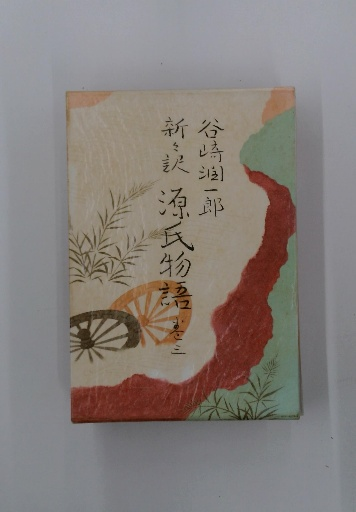 谷崎潤一郎
新々訳
源氏物語
巻三